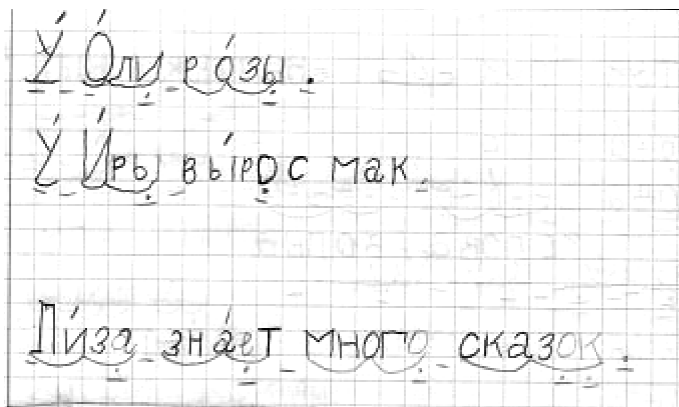 У́ О́ли ро́зы.
У́ И́ры вы́рос мак.
Ли́за зна́ет много сказок.